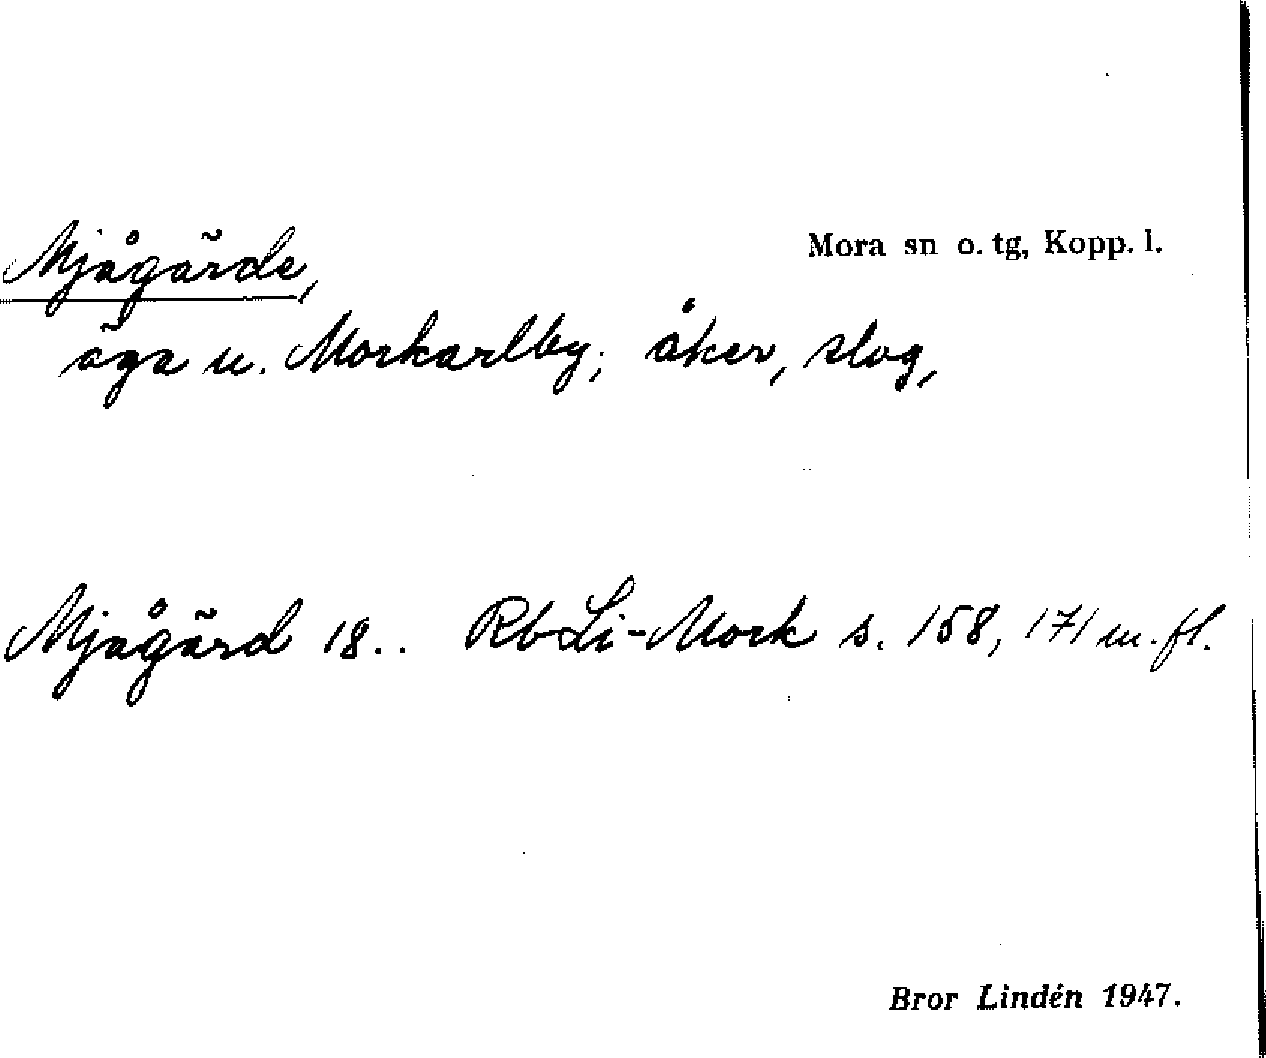 Mjågärde,
Mora sn o. tg, Kopp. l.
äga u. Morkarlby; åker, slog,
Mjågärd 18.. Rb Li-Mork s. 158, 171 m.fl.
Bror Lindén 1947.